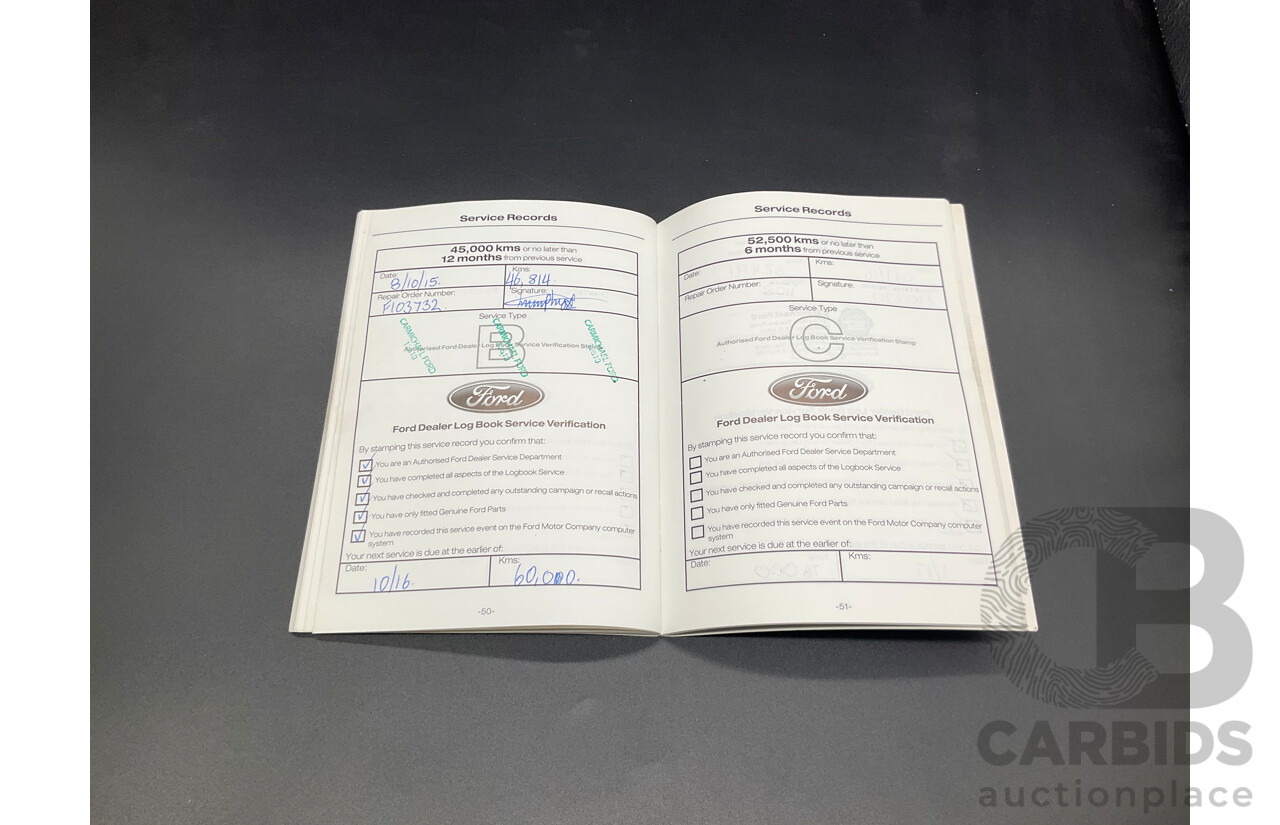 Service Records
45,000 kms or no later than
12 months from previous service
Date: 8/10/15.
Kms: 46,814
Repair Order Number: F103732.
Signature:
Service Type
B
Authorised Ford Dealer Log Book Service Verification Stamp
CARMICHAEL FORD
CARMICHAEL FORD
CARMICHAEL FORD
Ford
Ford Dealer Log Book Service Verification
By stamping this service record you confirm that:
You are an Authorised Ford Dealer Service Department
You have completed all aspects of the Logbook Service
You have checked and completed any outstanding campaign or recall actions
You have only fitted Genuine Ford Parts
You have recorded this service event on the Ford Motor Company computer
system
Your next service is due at the earlier of:
Date: 10/16.
Kms: 60,000.
-50-
Service Records
52,500 kms or no later than
6 months from previous service
Date:
Kms:
Repair Order Number:
Signature:
Service Type
C
Authorised Ford Dealer Log Book Service Verification Stamp
Ford
Ford Dealer Log Book Service Verification
By stamping this service record you confirm that:
You are an Authorised Ford Dealer Service Department
You have completed all aspects of the Logbook Service
You have checked and completed any outstanding campaign or recall actions
You have only fitted Genuine Ford Parts
You have recorded this service event on the Ford Motor Company computer
system
Your next service is due at the earlier of:
Date:
Kms:
-51-
CB
CARBIDS
auctionplace